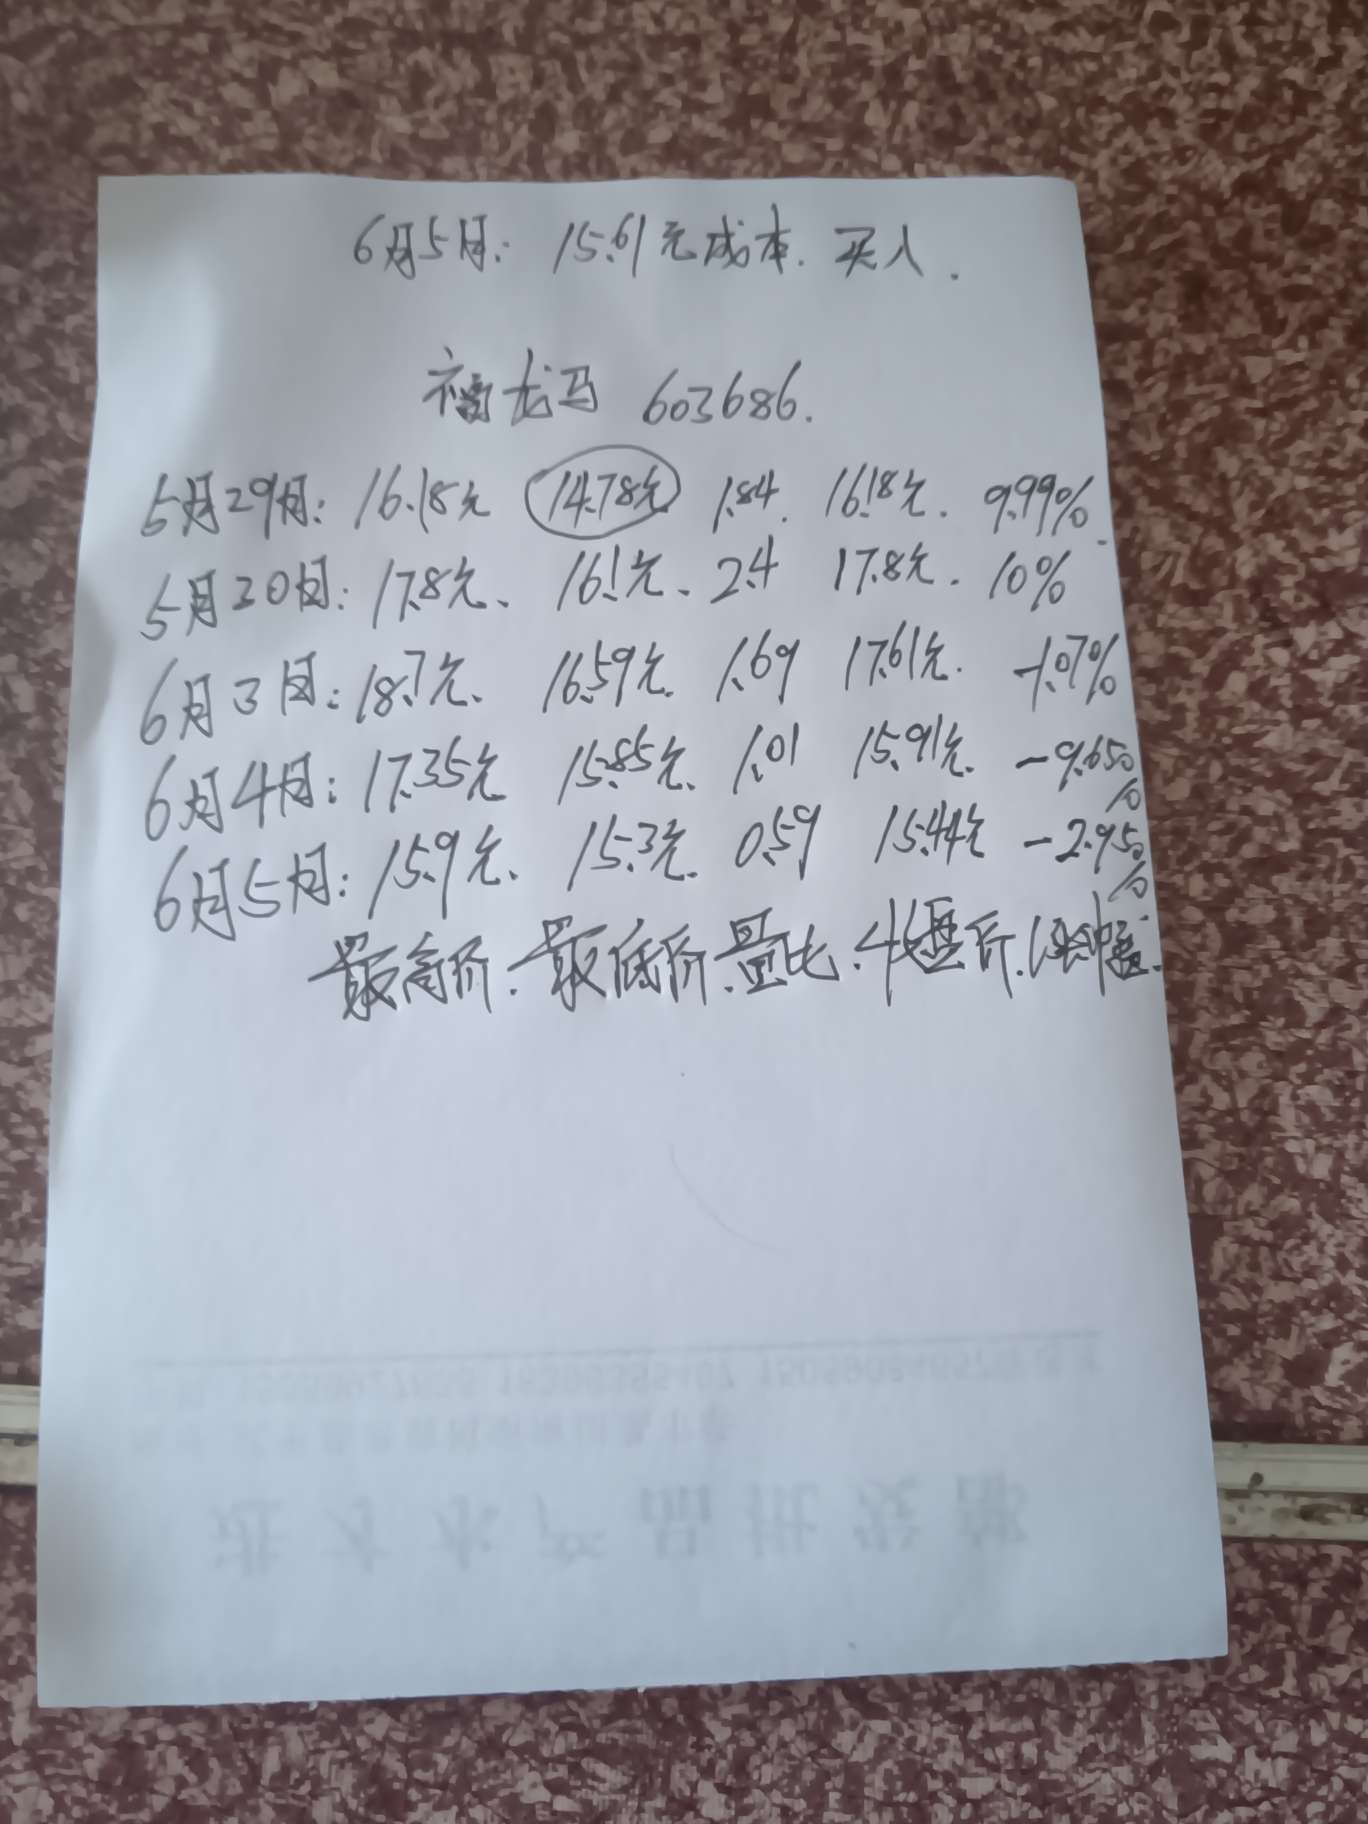 6月5日: 15.61元成本. 买入.
福龙马 603686.
5月29日: 16.18元 14.78元 1.84. 16.18元. 9.99%.
5月30日: 17.8元、 16.1元、 2.4 17.8元. 10%
6月3日: 18.7元、 16.59元. 1.69 17.61元. -1.07%
6月4日: 17.35元 15.85元. 1.01 15.91元. -9.65%
6月5日: 15.9元、 15.3元. 0.59 15.44元 -2.95%
最高价. 最低价. 量比. 收盘价. 涨幅.
进才水产品批发部